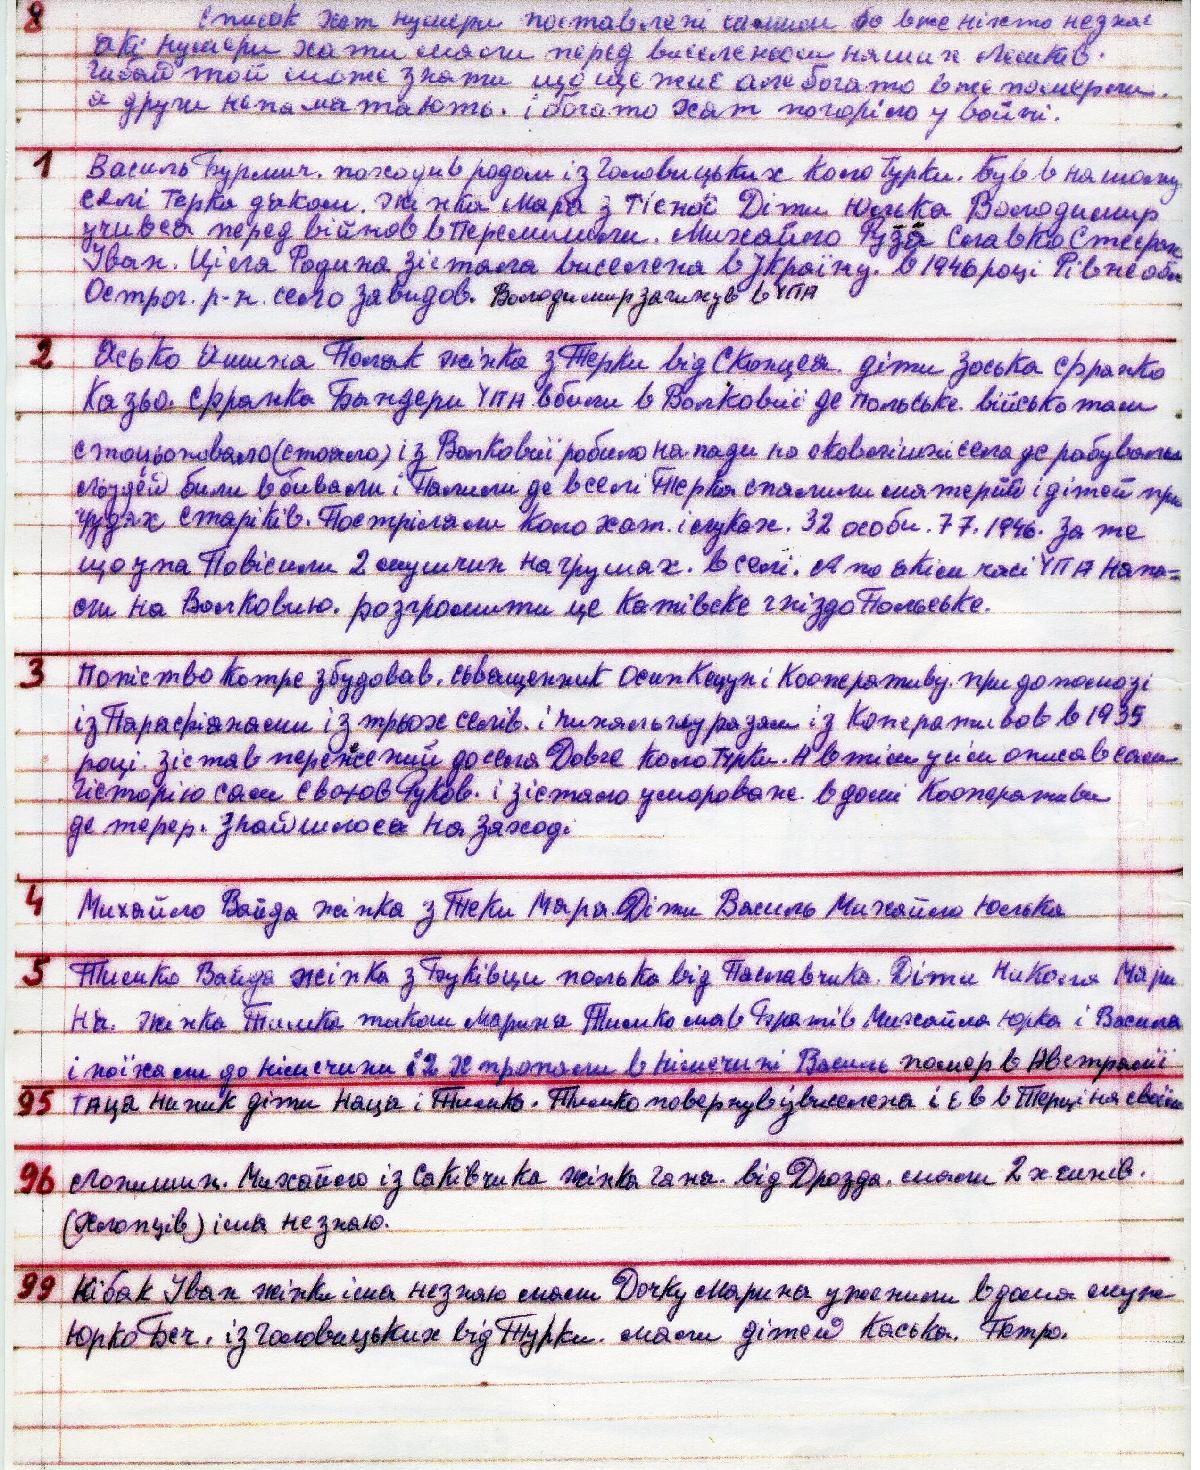 8 Список хат нумери поставлені самим бо вже ніхто незнає
які нумери хати мали перед виселеньом наших Лемків.
Хибай той може знати що ще жиє але богато вже померли.
а други непаматають. і богато хат погоріло у войні.
1 Василь Бурмич. походив родом із Головицьких коло Турки. Був в нашому
селі Терка дьяком. жінка Мара з Тісної Діти Юлька Володимир
учився перед війнов в Перемишли. Михайло Рузя Славко Стефан
Іван. Ціла Родина зістала виселена в Україну. в 1946 році Рівне обл
Острог. р-н. село Завидов. Володимир загинув в УПА
2 Ясько Поляк жінка з Терки від Скопцея. діти Зоська Франко
Казьо. Франка Бандери УПА вбили в Волковиї де польське. військо там
стоцьоновало (стояло) і із Волковиї робило напади на околишні села де рабували
людей били вбивали і Палили де в селі Терка спалили матерей і дітей при
грудях старіків. Постріляли коло хат. і луках. 32 особи. 7 7. 1946. За те
що упа Повісили 2 мущин на грушах. в селі. А по якім часі УПА напа=
ли на Волковию. розгромити це катівске гніздо Польське.
3 Попіство котре збудовав. сьващенник Осип Кецун і Кооперативу. при допомозі
із Парафіянами із трьох селів. і чительну разом із Коперативов в 1935
році. зістав перенесений до села Довге коло Турки. А втім у цім описав сам
гісторію сам своюв Руков. і зістало умороване. в домі Кооперативи
де тепер. знайшлося на заході
4 Михайло Вайда жінка з Теки Мара. Діти Василь Михайло Юлька
5 Тимко Вайда жінка з Буківци полька від Паславчика. Діти Никола Мари
на. жінка Тимка также Марина Тимко мав Братів Михайла Юрка і Василя
і поїхали до Німечини і 2 х пропали в Німечині Василь помер в Австралії
95 Гаца Ниник діти Наца і Тимко. Тимко повернув із виселена і є в в Терці на своїм
96 Лопишин. Михайло із Саківчика жінка Гана. від Дрозда. мали 2 х синів.
(Хлопців) імя незнаю.
99 Кібак Іван жінки імя незнаю мали Дочку Марина уженили вдома муж
Юрко Беч. із Головицьких від Турки. мали дітей Каська. Петро.